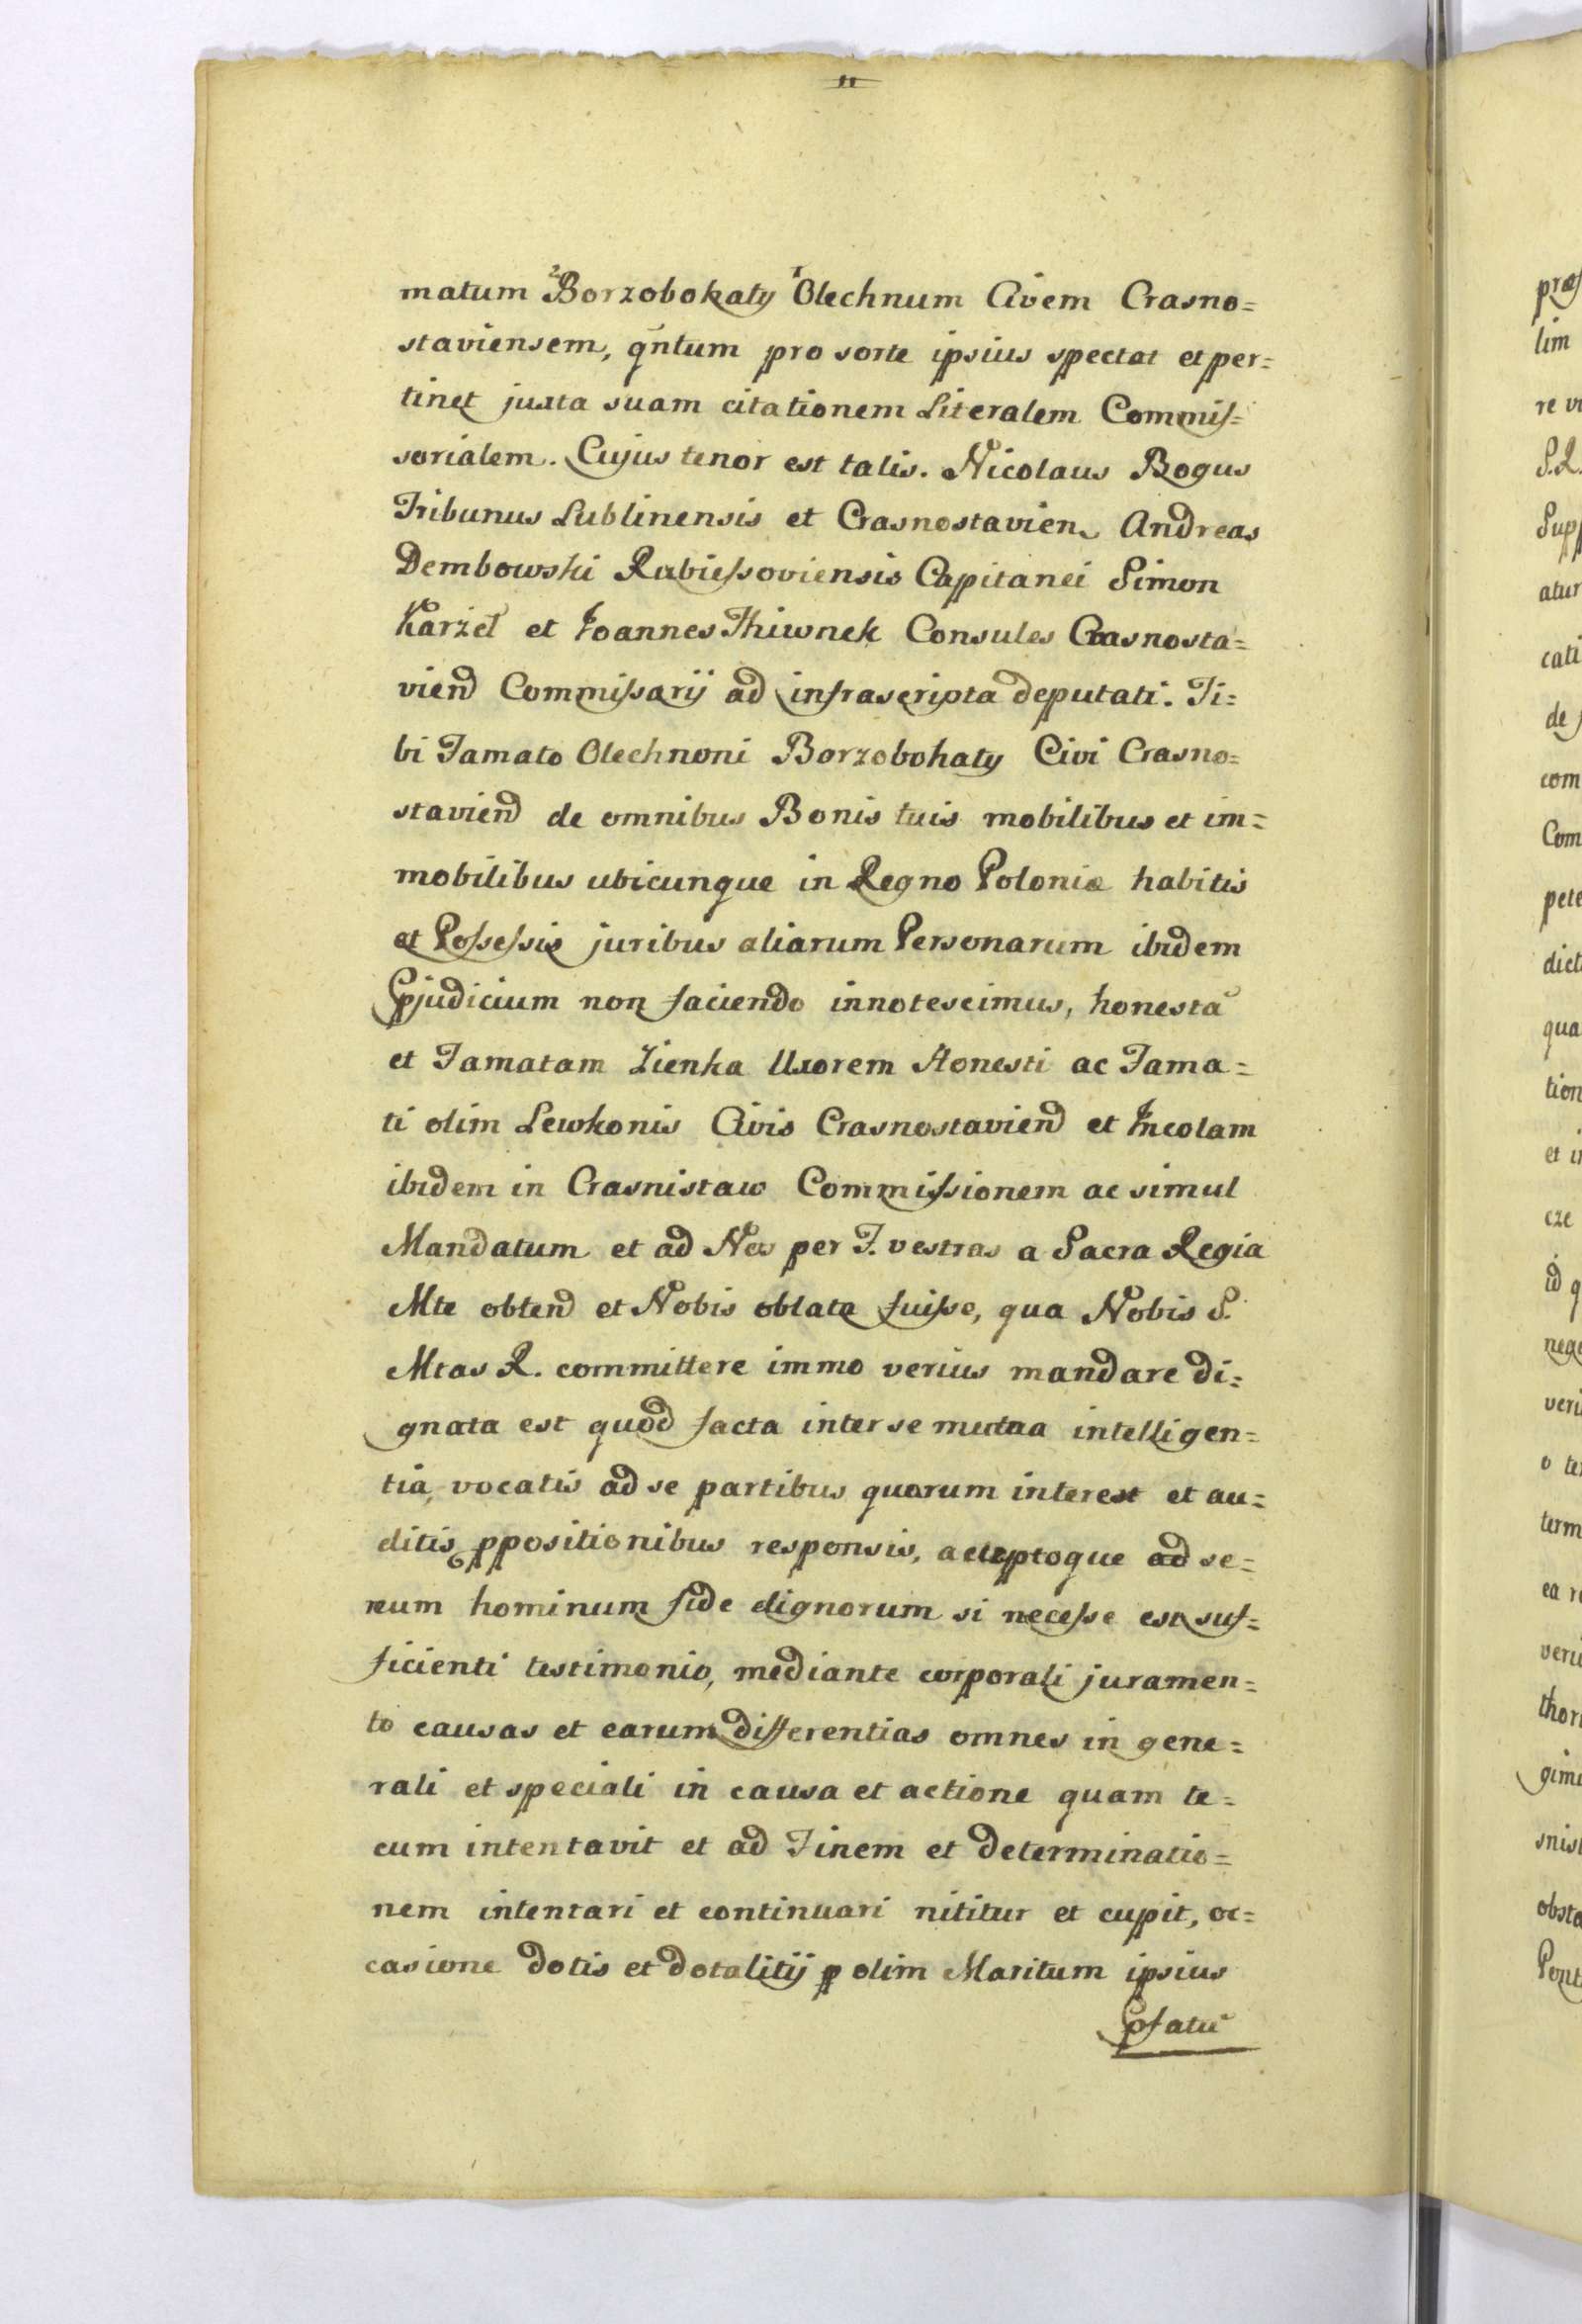 11
matum ²Borzobohaty ¹Olechnum Civem Crasno=
staviensem, qntum pro sorte ipsius spectat et per=
tinet juxta suam citationem Literalem Commis=
sorialem. Cujus tenor est talis. Nicolaus Bogus
Tribunus Lublinensis et Crasnostavien Andreas
Dembowski Rubiessoviensis Capitanei Simon
Karzel et Joannes Thiwnek Consules Crasnosta=
vien Commissarij ad infrascripta deputati. Ti=
bi Famato Olechnoni Borzobohaty Civi Crasno=
stavien de omnibus Bonis tuis mobilibus et im=
mobilibus ubicunque in Regno Poloniæ habitis
et Possessis juribus aliarum Personarum ibidem
Pjudicium non faciendo innotescimus, honestã
et Famatam Zienka Uxorem Honesti ac Fama=
ti olim Lewkonis Civis Crasnostavien et Incolam
ibidem in Crasnistaw Commissionem ac simul
Mandatum et ad Nos per F. vestras a Sacra Regia
Mte obten et Nobis oblata fuisse, qua Nobis S.
Mtas R. committere immo verius mandare di=
gnata est quod facta inter se mutua intelligen=
tia, vocatis ad se partibus quorum interest et au=
ditis ppositionibus responsis, acceptoque ad se=
num hominum fide dignorum si necesse est suf=
ficienti testimonio, mediante corporali juramen=
to causas et earum differentias omnes in gene=
rali et speciali in causa et actione quam te=
cum intentavit et ad Finem et determinatio=
nem intentari et continuari nititur et cupit, oc=
casione dotis et dotalitij p olim Maritum ipsius
pfatũ
præs
lim
re vi
S.R.
Supp
atur
cati
de
com
Com
pete
dict
qua
tion
et i
cze
id q
nego
veri
o te
term
ea r
veri
thor
gimi
snis
obsta
Pont